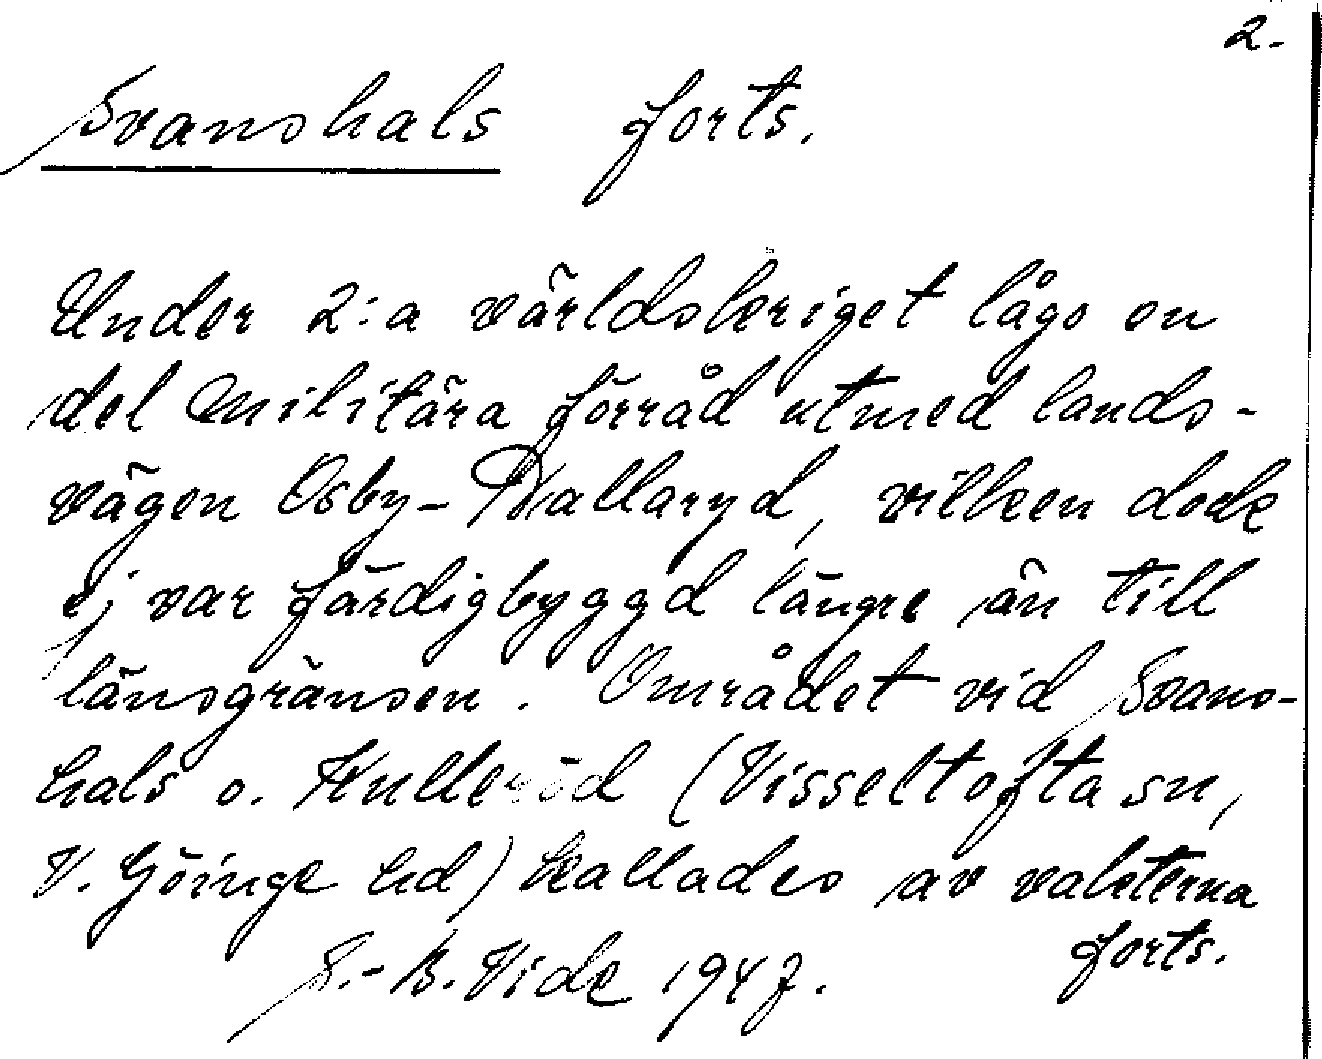 2.
Svanshals forts.
Under 2:a världskriget lågo en
del militära förråd utmed lands-
vägen Osby-Hallaryd, vilken dock
ej var färdigbyggd längre än till
länsgränsen. Området vid Svans-
hals o. Hulleröd (Visseltofta sn,
V. Göinge hd) kallades av vakterna
forts.
S.-B. Vide 1947.